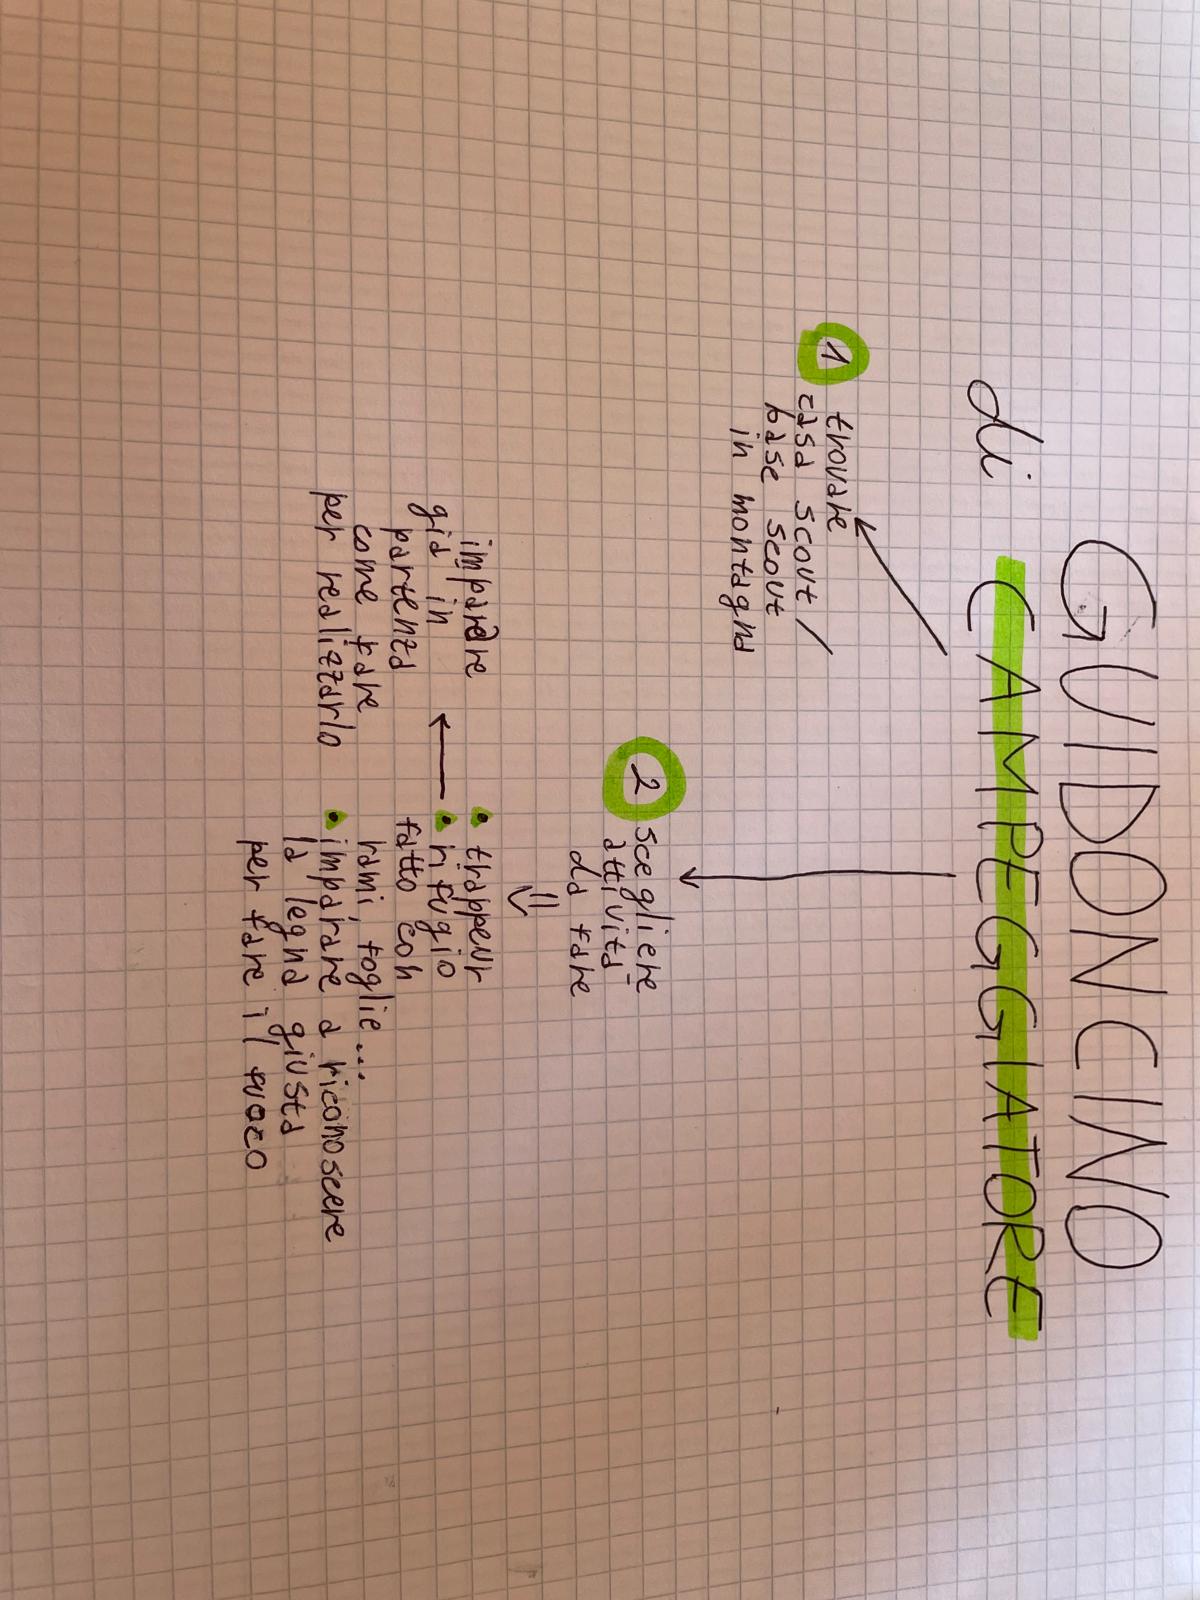 GUIDONCINO
di CAMPEGGIATORE
1 trovare
casa scout /
base scout
in montagna
2 scegliere
attività
da fare
• trappeur
• rifugio
fatto con
rami, foglie...
• imparare a riconoscere
la legna giusta
per fare il fuoco
imparare
già in
partenza
come fare
per realizzarlo